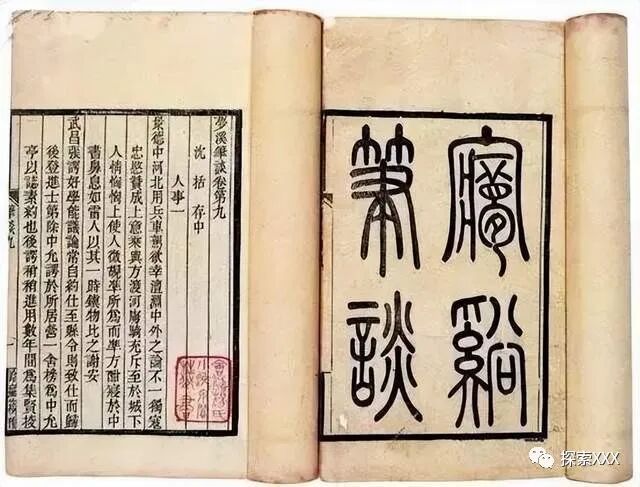 㝱谿
筆談
夢溪筆談卷第九
沈括存中
人事一
景德中河北用兵車駕欲幸澶淵中外之論不一獨寇
忠愍贊成上意乘輿方渡河虜騎充斥至於城下
人情恟恟上使人微覘準所為而準方酣寢於中
書鼻息如雷人以其一時鎮物比之謝安
武昌張諤好學能議論常自約仕至縣令則致仕而歸
後登進士第除中允諤於所居營一舍榜為中允
亭以誌素約也後諤稍稍進用數年間為集賢校
筆談九
探索XXX